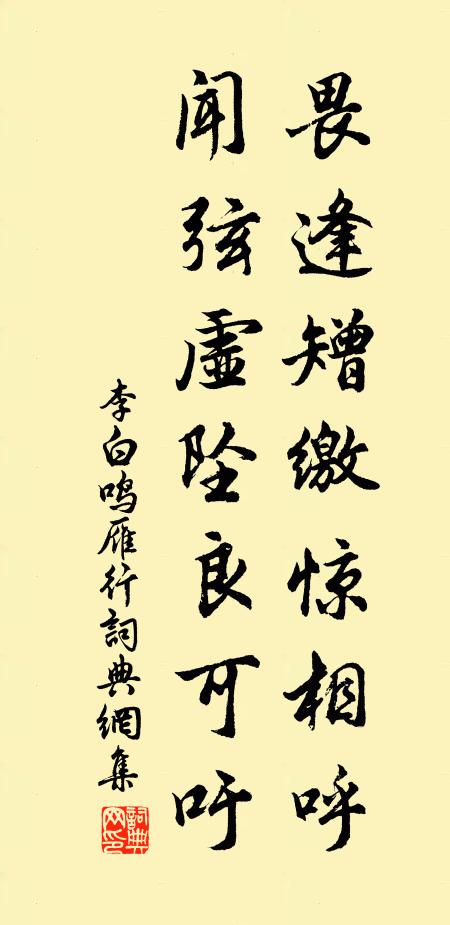 畏逢矰缴惊相呼
闻弦虚坠良可吁
李白鸣雁行詞典網集
詞典网印